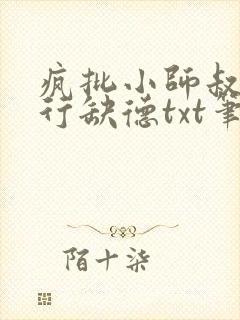 疯批小师叔
行缺德txt笔
陌十柒